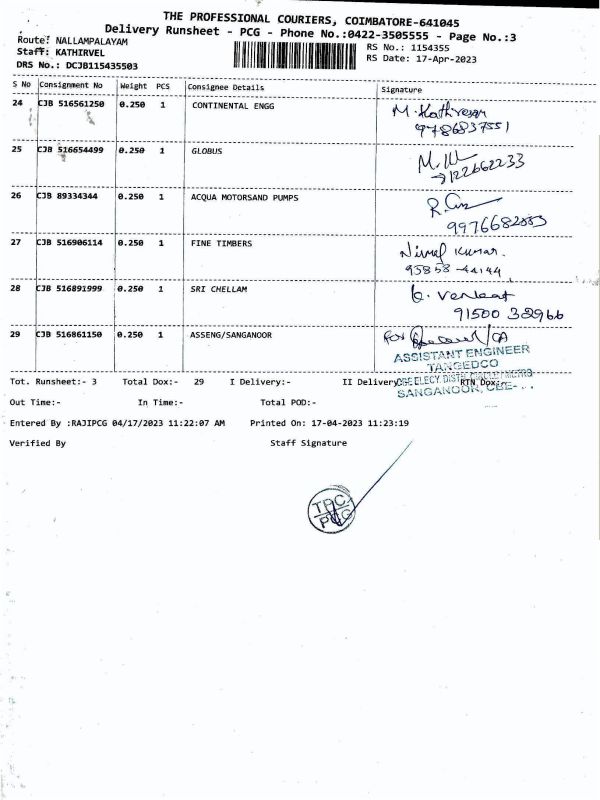 THE PROFESSIONAL COURIERS, COIMBATORE-641045
Delivery Runsheet - PCG - Phone No.:0422-3505555 - Page No.:3
Route: NALLAMPALAYAM
Staff: KATHIRVEL
DRS No.: DCJB115435503
RS No.: 1154355
RS Date: 17-Apr-2023
S No Consignment No Weight PCS Consignee Details Signature
24 CJB 516561250 0.250 1 CONTINENTAL ENGG
M. Kathiresan
9786837551
25 CJB 516654499 0.250 1 GLOBUS
26 CJB 89334344 0.250 1 ACQUA MOTORSAND PUMPS
27 CJB 516906114 0.250 1 FINE TIMBERS
Nirmal Kumar.
95858-44144
28 CJB 516891999 0.250 1 SRI CHELLAM
G. Venkat
91500 32966
29 CJB 516861150 0.250 1 ASSENG/SANGANOOR
For
ASSISTANT ENGINEER
TANGEDCO
CBE ELECY. DISTN. CIRCLE / METRO
SANGANOOR, CBE-
Tot. Runsheet:- 3 Total Dox:- 29 I Delivery:- II Delivery RTN Dox:-
Out Time:- In Time:- Total POD:-
Entered By :RAJIPCG 04/17/2023 11:22:07 AM Printed On: 17-04-2023 11:23:19
Verified By Staff Signature
TPC
PCG